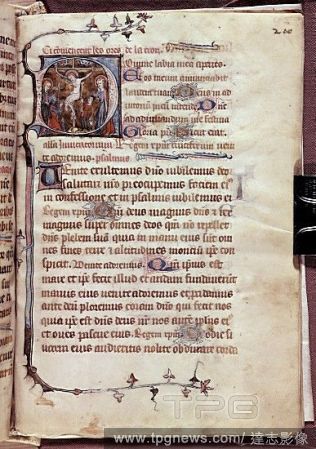 Ci cōmencent les ores de la croiz
Domine labia mea aperies.
Et os meum annunciabit
laudem tuam Deus in ad
iutorium meum intende Domine
ad adiuuandum me festina
Gloria patri Sicut erat.
Uenite exultemus dn̄o iubilemus deo
salutari nr̄o preoccupemus faciem eius
in confessione et in psalmis iubilemus ei
Regem Qm̄ deus magnus dn̄s et rex
magnus super omnes deos qm̄ nō repellet
dn̄s plebem suā quia in manu eius sūt om̄
nes fines terre et altitudines monciū ipse con
spicit. Uenite adoremus Qm̄ ipsius est
mare et ipse fecit illud et aridam fundauerūt
manus eius uenite adoremus et procidamus
ante deū ploremus coram dn̄o qui fecit nos
quia ipse est dn̄s deus nr̄ nos autē plebs eius
et oues pascue eius. Regem Hodie si
uocem eius audieritis nolite obdurare corda
TPG
www.tpgnews.com/ 達志影像